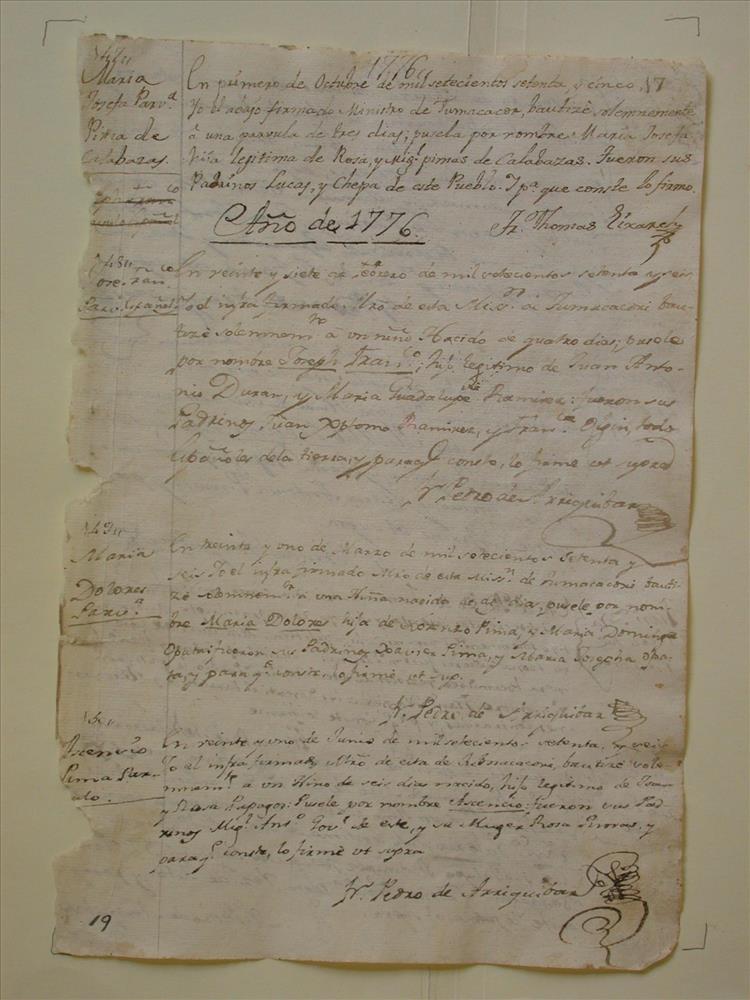 1776
17
147
Maria
Josefa Parv.ª
Pima de
Calabazas.
En primero de Octubre de mil setecientos setenta, y cinco,
Yo el abajo firmado Ministro de Tumacacor, bautizè solemnemente
à una parvula de tres dias; pusela por nombre Maria Josefa
hija legitima de Rosa, y Mig.l pimas de Calabazas. Fueron sus
Padrinos Lucas, y Chepa de este Pueblo. Y p.ª que conste lo firmo.
Fr. Thomas Eixarch
Año de 1776.
148
Jose Fran.co
Parv. Español
En veinte y siete de Febrero de mil setecientos setenta y seis
Yo el infra firmado Mro de esta Miss.n de Tumacacori bau-
tizè solemnem.te à un niño Nacido de quatro dias, pusele
por nombre Joseph Fran.co, hijo legitimo de Juan Anto-
nio Duran, y Maria Guadalupe Ramirez: fueron sus
Padrinos Juan Xptomo Ramirez, y Fran.ca Olgin, todos
Españoles de la tierra, y para q.e conste, lo firme ut supra
Fr. Pedro de Arriquibar
149
Maria
Dolores
Parv.ª
En treinta y uno de Marzo de mil setecientos setenta y
seis Yo el infra firmado Mro de esta Miss.n de Tumacacori bauti-
zè solemnem.te à una Niña nacida de dias, pusele por nom-
bre Maria Dolores, hija de Lorenzo Pima, y Maria Dominga
Opata: fueron sus Padrinos Xavier Pima, y Maria Josepha Opa-
ta, y para q.e conste, lo firmè ut sup.
Fr. Pedro de Arriquibar
Ascencio
Pima Parv-
ulo.
En veinte y uno de Junio de mil setecientos setenta, y seis
Yo el infra firmado Mro de esta de Tumacacori, bautizè sole-
mnem.te à un Nino de seis dias nacido, hijo legitimo de Juan
y Rosa Papagos: Pusele por nombre Ascencio: fueron sus Pad-
rinos Mig.l Ant.o Gov.r de este, y su Muger Rosa Pimas, y
para q.e conste, lo firmè ut supra
Fr. Pedro de Arriquibar
19